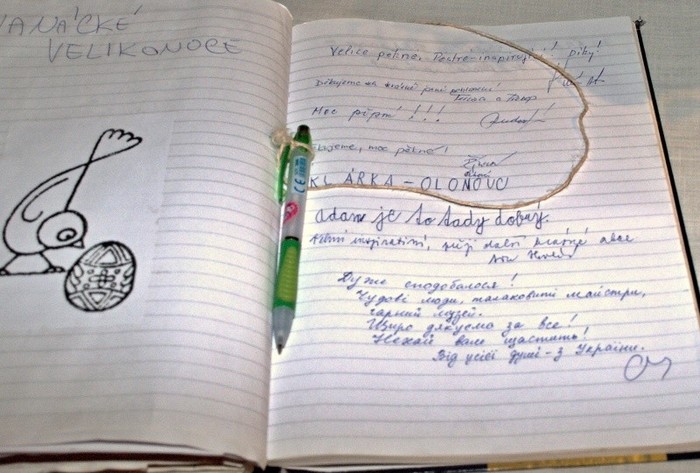 HANÁCKÉ
VELIKONOCE
Velice pěkné, Pestré, inspirující! díky!
Děkujeme za krásné
Moc pěkné!!!
Děkujeme, moc pěkné!
KLÁRKA – OLOMOUC
adam je to tady dobrý.
Velmi inspirativní, přeji další krásné akce
Дуже сподобалося!
Чудові люди, талановиті майстри,
гарний музей.
Щиро дякуємо за все!
Нехай вам щастить!
Від усієї душі - з України.